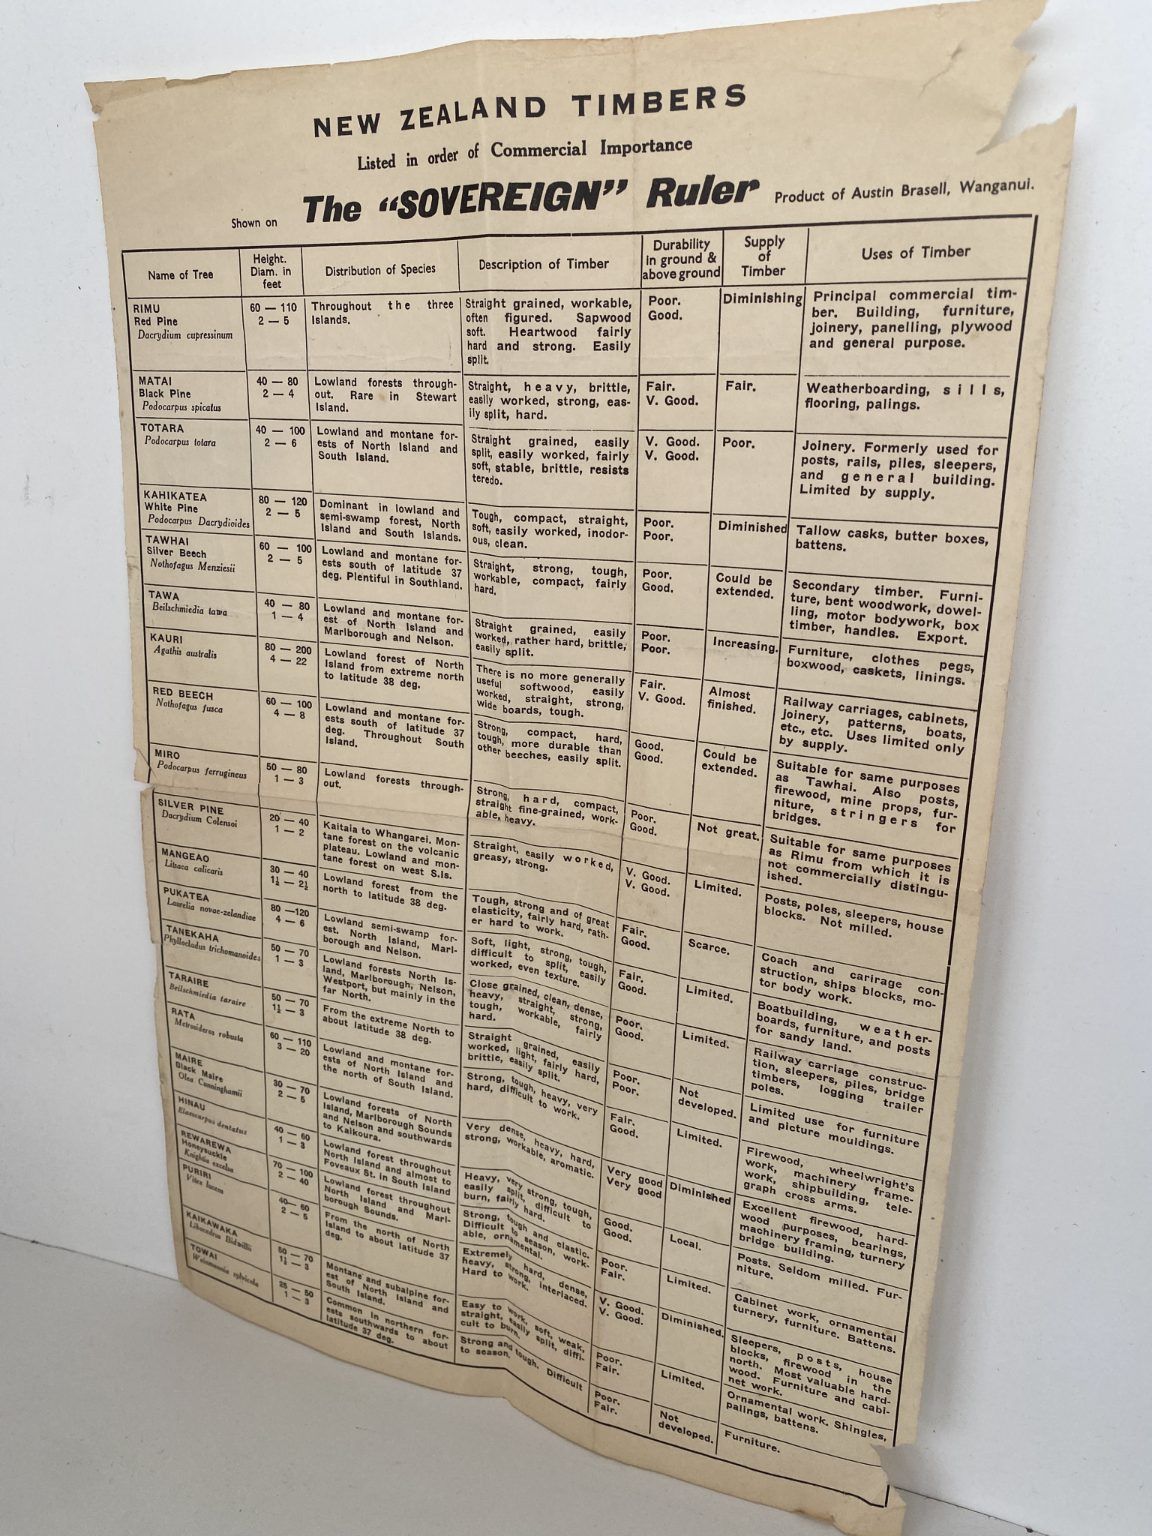 NEW ZEALAND TIMBERS
Listed in order of Commercial Importance
Shown on The "SOVEREIGN" Ruler Product of Austin Brasell, Wanganui.
Name of Tree
Height.
Diam. in
feet
Distribution of Species
Description of Timber
Durability
in ground &
above ground
Supply
of
Timber
Uses of Timber
RIMU
Red Pine
Dacrydium cupressinum
60 — 110
2 — 5
Throughout the three
Islands.
Straight grained, workable,
often figured. Sapwood
soft. Heartwood fairly
hard and strong. Easily
split.
Poor.
Good.
Diminishing
Principal commercial tim-
ber. Building, furniture,
joinery, panelling, plywood
and general purpose.
MATAI
Black Pine
Podocarpus spicatus
40 — 80
2 — 4
Lowland forests through-
out. Rare in Stewart
Island.
Straight, heavy, brittle,
easily worked, strong, eas-
ily split, hard.
Fair.
V. Good.
Fair.
Weatherboarding, sills,
flooring, palings.
TOTARA
Podocarpus totara
40 — 100
2 — 6
Lowland and montane for-
ests of North Island and
South Island.
Straight grained, easily
split, easily worked, fairly
soft, stable, brittle, resists
teredo.
V. Good.
V. Good.
Poor.
Joinery. Formerly used for
posts, rails, piles, sleepers,
and general building.
Limited by supply.
KAHIKATEA
White Pine
Podocarpus Dacrydioides
80 — 120
2 — 5
Dominant in lowland and
semi-swamp forest, North
Island and South Islands.
Tough, compact, straight,
soft, easily worked, inodor-
ous, clean.
Poor.
Poor.
Diminished
Tallow casks, butter boxes,
battens.
TAWHAI
Silver Beech
Nothofagus Menziesii
60 — 100
2 — 5
Lowland and montane for-
ests south of latitude 37
deg. Plentiful in Southland.
Straight, strong, tough,
workable, compact, fairly
hard.
Poor.
Good.
Could be
extended.
Secondary timber. Furni-
ture, bent woodwork, dowel-
ling, motor bodywork, box
timber, handles. Export.
TAWA
Beilschmiedia tawa
40 — 80
1 — 4
Lowland and montane for-
est of North Island and
Marlborough and Nelson.
Straight grained, easily
worked, rather hard, brittle,
easily split.
Poor.
Poor.
Increasing.
Furniture, clothes pegs,
boxwood, caskets, linings.
KAURI
Agathis australis
80 — 200
4 — 22
Lowland forest of North
Island from extreme north
to latitude 38 deg.
There is no more generally
useful softwood, easily
worked, straight, strong,
wide boards, tough.
Fair.
V. Good.
Almost
finished.
Railway carriages, cabinets,
joinery, patterns, boats,
etc., etc. Uses limited only
by supply.
RED BEECH
Nothofagus fusca
60 — 100
4 — 8
Lowland and montane for-
ests south of latitude 37
deg. Throughout South
Island.
Strong, compact, hard,
tough, more durable than
other beeches, easily split.
Good.
Good.
Could be
extended.
Suitable for same purposes
as Tawhai. Also posts,
firewood, mine props, fur-
niture, stringers for
bridges.
MIRO
Podocarpus ferrugineus
50 — 80
1 — 3
Lowland forests through-
out.
Strong, hard, compact,
straight fine-grained, work-
able, heavy.
Poor.
Good.
Not great.
Suitable for same purposes
as Rimu from which it is
not commercially distingu-
ished.
SILVER PINE
Dacrydium Colensoi
20 — 40
1 — 2
Kaitaia to Whangarei. Mon-
tane forest on the volcanic
plateau. Lowland and mon-
tane forest on west S.Is.
Straight, easily worked,
greasy, strong.
V. Good.
V. Good.
Limited.
Posts, poles, sleepers, house
blocks. Not milled.
MANGEAO
Litsaea calicaris
30 — 40
1½ — 2½
Lowland forest from the
north to latitude 38 deg.
Tough, strong and of great
elasticity, fairly hard, rath-
er hard to work.
Fair.
Good.
Scarce.
Coach and carirage con-
struction, ships blocks, mo-
tor body work.
PUKATEA
Laurelia novae-zelandiae
80 —120
4 — 6
Lowland semi-swamp for-
est. North Island, Marl-
borough and Nelson.
Soft, light, strong, tough,
difficult to split, easily
worked, even texture.
Fair.
Good.
Limited.
Boatbuilding, weather-
boards, furniture, and posts
for sandy land.
TANEKAHA
Phyllocladus trichomanoides
50 — 70
1 — 3
Lowland forests North Is-
land, Marlborough, Nelson,
Westport, but mainly in the
far North.
Close grained, clean, dense,
heavy, straight, strong,
tough, workable, fairly
hard.
Poor.
Good.
Limited.
Railway carriage construc-
tion, sleepers, piles, bridge
timbers, logging trailer
poles.
TARAIRE
Beilschmiedia taraire
50 — 70
1½ — 3
From the extreme North to
about latitude 38 deg.
Straight grained, easily
worked, light, fairly hard,
brittle, easily split.
Poor.
Poor.
Not
developed.
Limited use for furniture
and picture mouldings.
RATA
Metrosideros robusta
60 — 110
3 — 20
Lowland and montane for-
ests of North Island and
the north of South Island.
Strong, tough, heavy, very
hard, difficult to work.
Fair.
Good.
Limited.
Firewood, wheelwright's
work, machinery frame-
work, shipbuilding, tele-
graph cross arms.
MAIRE
Black Maire
Olea Cunninghamii
30 — 70
2 — 5
Lowland forests of North
Island, Marlborough Sounds
and Nelson and southwards
to Kaikoura.
Very dense, heavy, hard,
strong, workable, aromatic.
Very good
Very good
Diminished
Excellent firewood, hard-
wood purposes, bearings,
machinery framing, turnery
bridge building.
HINAU
Elaeocarpus dentatus
40 — 60
1 — 3
Lowland forest throughout
North Island and almost to
Foveaux St. in South Island
Heavy, very strong, tough,
easily split, difficult to
burn, fairly hard.
Good.
Good.
Local.
Posts. Seldom milled. Fur-
niture.
REWAREWA
Honeysuckle
Knightia excelsa
70 — 100
2 — 40
Lowland forest throughout
North Island and Marl-
borough Sounds.
Strong, tough and elastic.
Difficult to season, work-
able, ornamental.
Poor.
Fair.
Limited.
Cabinet work, ornamental
turnery, furniture. Battens.
PURIRI
Vitex lucens
40— 60
2 — 5
From the north of North
Island to about latitude 37
deg.
Extremely hard, dense,
heavy, strong, interlaced.
Hard to work.
V. Good.
V. Good.
Diminished.
Sleepers, posts, house
blocks, firewood in the
north. Most valuable hard-
wood. Furniture and cabi-
net work.
KAIKAWAKA
Libocedrus Bidwillii
50 — 70
1½ — 3
Montane and subalpine for-
est of North Island and
South Island.
Easy to work, soft, weak,
straight, easily split, diffi-
cult to burn.
Poor.
Fair.
Limited.
Ornamental work. Shingles,
palings, battens.
TOWAI
Weinmannia sylvicola
25 — 50
1 — 3
Common in northern for-
ests southwards to about
latitude 37 deg.
Strong and tough. Difficult
to season.
Poor.
Fair.
Not
developed.
Furniture.